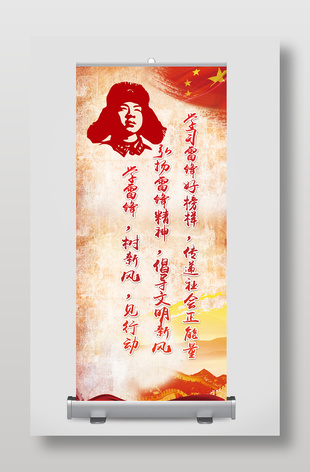 学习雷锋好榜样，传递社会正能量
弘扬雷锋精神，倡导文明新风
学雷锋，树新风，见行动